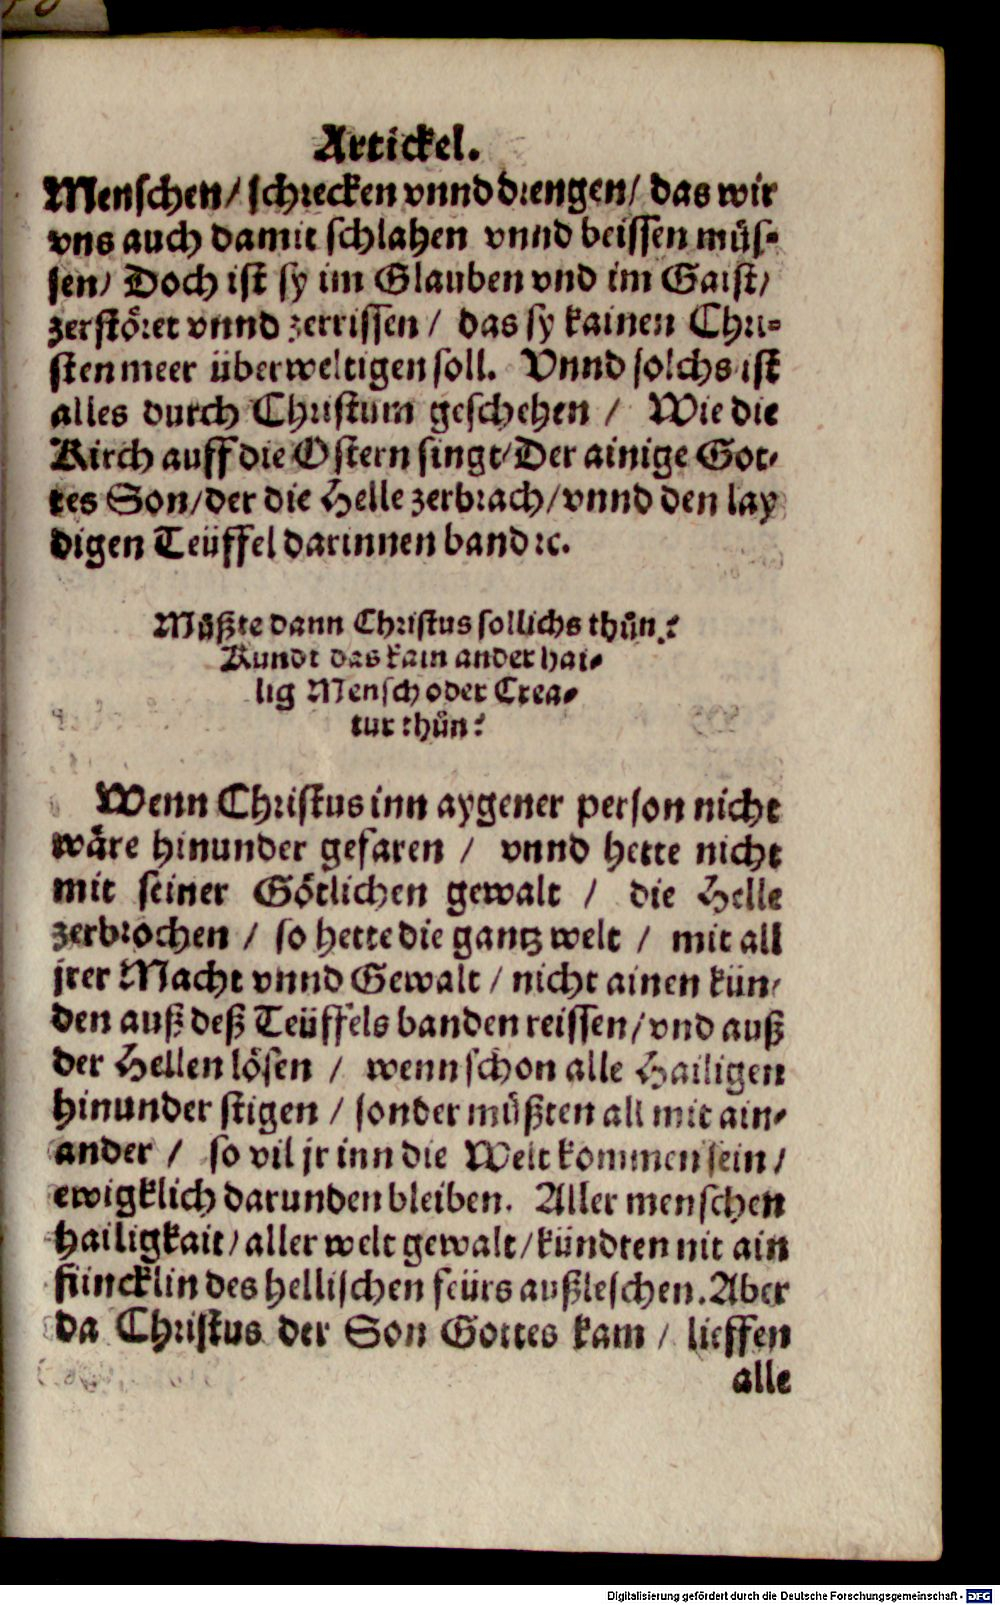 Artickel.
Menschen/ schrecken vnnd drengen/ das wir
vns auch damit schlahen vnnd beissen müs-
sen/ Doch ist sy im Glauben vnd im Gaist/
zerstöret vnnd zerrissen / das sy kainen Chri-
sten meer überweltigen soll. Vnnd solchs ist
alles durch Christum geschehen / Wie die
Kirch auff die Ostern singt/ Der ainige Got-
tes Son/ der die Helle zerbrach/ vnnd den lay
digen Teüffel darinnen band ꝛc.
Můßte dann Christus sollichs thůn?
Kundt das kain ander hai-
lig Mensch oder Crea-
tur thůn?
Wenn Christus inn aygener person nicht
wäre hinunder gefaren / vnnd hette nicht
mit seiner Götlichen gewalt / die Helle
zerbrochen / so hette die gantz welt / mit all
jrer Macht vnnd Gewalt / nicht ainen kün-
den auß deß Teüffels banden reissen/ vnd auß
der Hellen lösen / wenn schon alle Hailigen
hinunder stigen / sonder müßten all mit ain-
ander / so vil jr inn die Welt kommen sein /
ewigklich darunden bleiben. Aller menschen
hailigkait/ aller welt gewalt/ kündten nit ain
füncklin des hellischen feürs außleschen. Aber
da Christus der Son Gottes kam / lieffen
alle
Digitalisierung gefördert durch die Deutsche Forschungsgemeinschaft - DFG